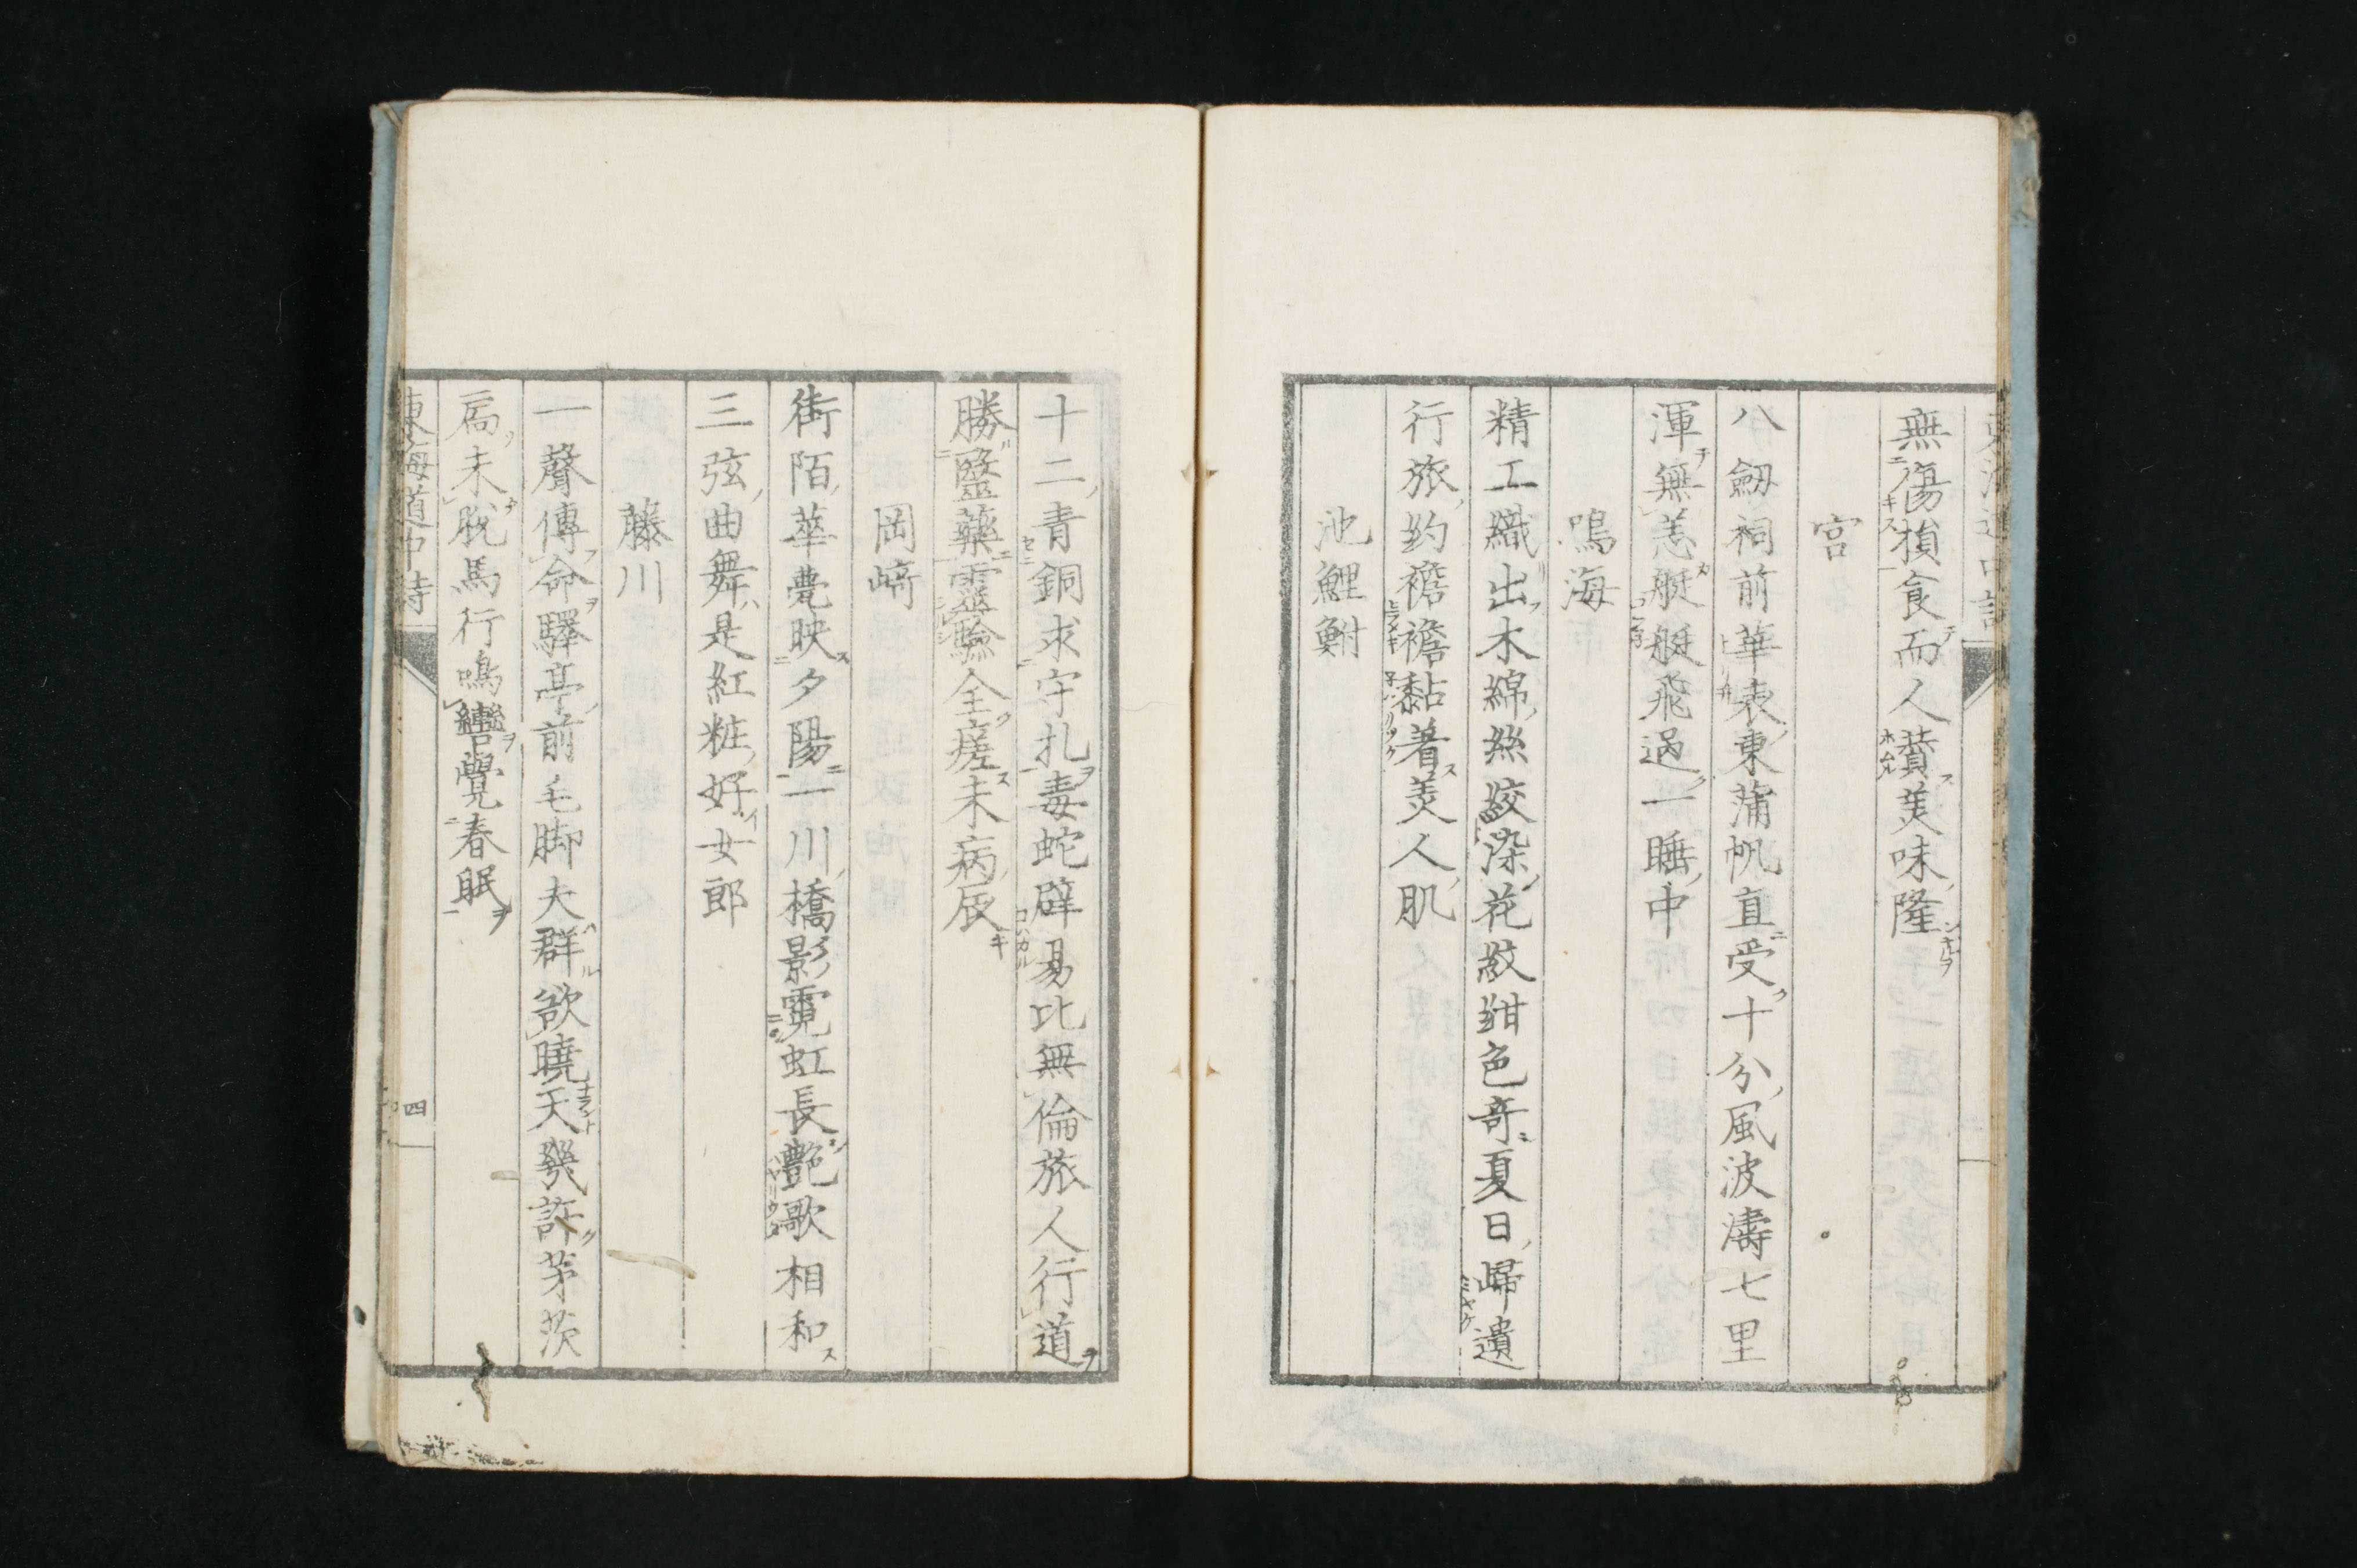 無傷損食而人賛美味隆
宮
八劔祠前華表東蒲帆直受十分風波濤七里
渾無恙艇艇飛過一睡中
鳴海
精工織出木綿絲絞染花紋紺色奇夏日帰遺
行旅約襜襜黏着美人肌
池鯉鮒
十二青銅求守札毒蛇辟易比無倫旅人行道
勝醫藥靈驗全瘥未病辰
岡崎
街陌華甍映夕陽一川橋影霓虹長艶歌相和
三弦曲舞是紅粧好女郎
藤川
一聲傳命驛亭前毛脚夫群欲曉天幾許茅茨
扃未脱馬行鳴轡覺春眠
東海道中詩
四